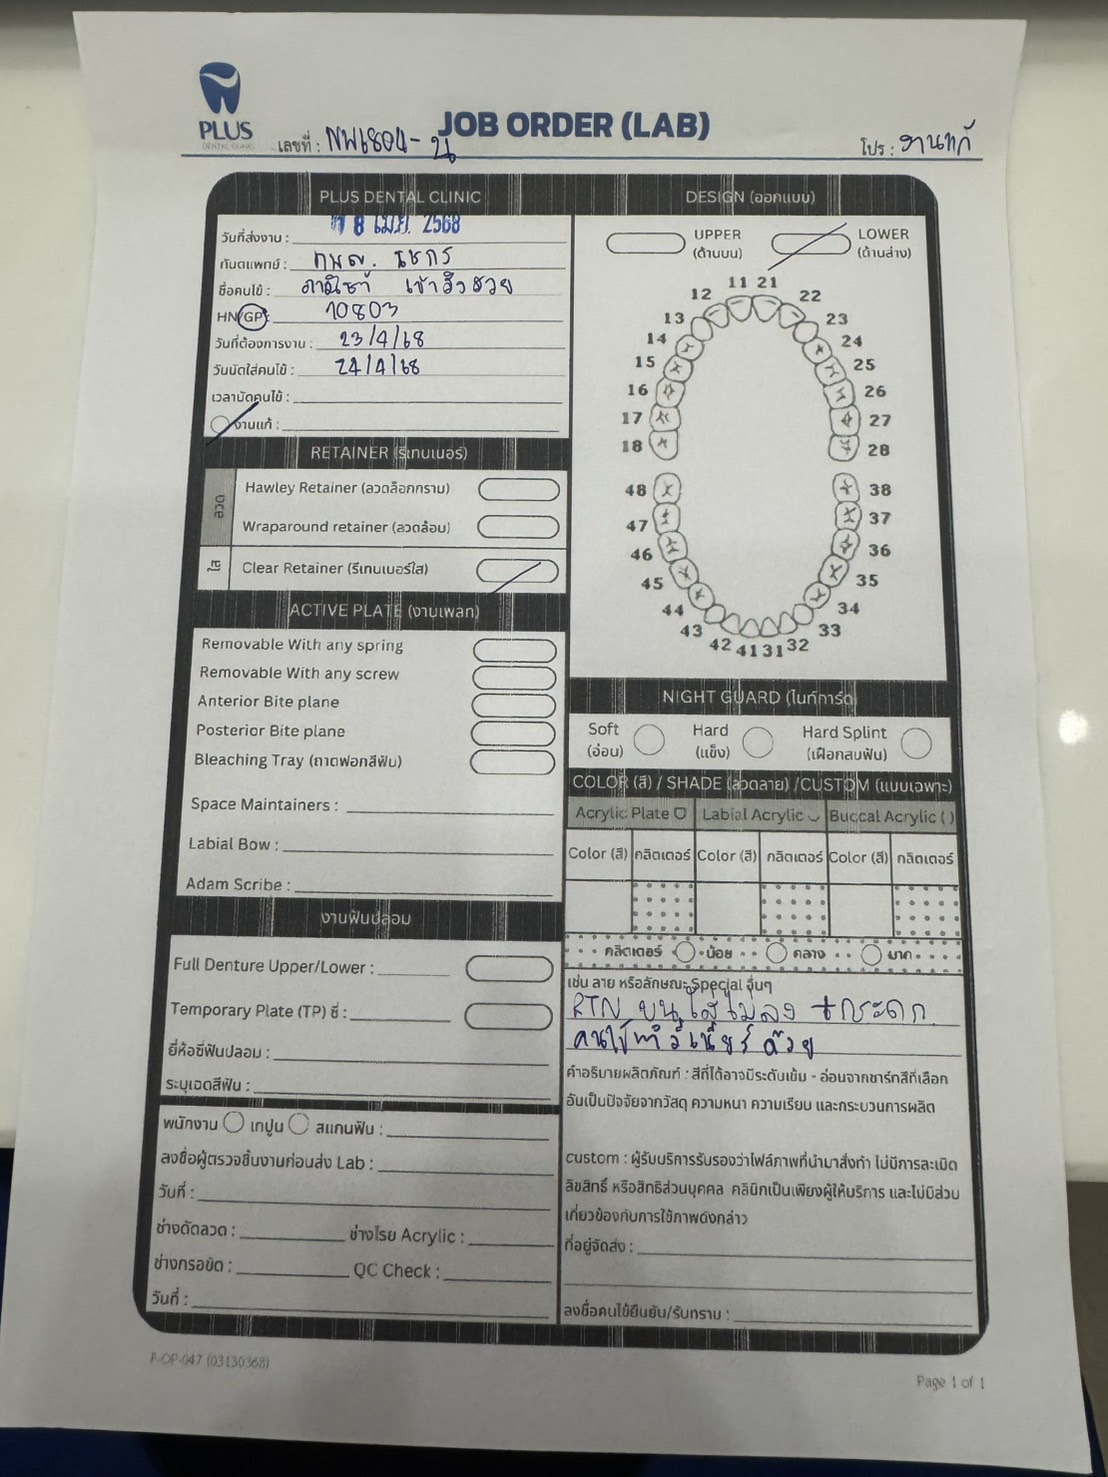 PLUS
DENTAL CLINIC
JOB ORDER (LAB)
เลขที่ : NW6804-
โปร : งานแก้
PLUS DENTAL CLINIC
วันที่ส่งงาน : 8 เม.ย. 2568
ทันตแพทย์ : ทพญ.
ชื่อคนไข้ :
HN/GP : 10803
วันที่ต้องการงาน : 23/4/68
วันนัดใส่คนไข้ : 24/4/68
เวลานัดคนไข้ :
งานแก้ :
RETAINER (รีเทนเนอร์)
ลวด
Hawley Retainer (ลวดล็อกกราม)
Wraparound retainer (ลวดล้อม)
ใส
Clear Retainer (รีเทนเนอร์ใส)
ACTIVE PLATE (งานเพลท)
Removable With any spring
Removable With any screw
Anterior Bite plane
Posterior Bite plane
Bleaching Tray (ถาดฟอกสีฟัน)
Space Maintainers :
Labial Bow :
Adam Scribe :
งานฟันปลอม
Full Denture Upper/Lower :
Temporary Plate (TP) ซี่ :
ยี่ห้อซี่ฟันปลอม :
ระบุเฉดสีฟัน :
พนักงาน เทปูน สแกนฟัน :
ลงชื่อผู้ตรวจชิ้นงานก่อนส่ง Lab :
วันที่ :
ช่างดัดลวด : ช่างโรย Acrylic :
ช่างกรอขัด : QC Check :
วันที่ :
DESIGN (ออกแบบ)
UPPER LOWER
(ด้านบน) (ด้านล่าง)
11 21
12 22
13 23
14 24
15 25
16 26
17 27
18 28
48 38
47 37
46 36
45 35
44 34
43 33
42 41 31 32
NIGHT GUARD (ไนท์การ์ด)
Soft Hard Hard Splint
(อ่อน) (แข็ง) (เฝือกสบฟัน)
COLOR (สี) / SHADE (ลวดลาย) /CUSTOM (แบบเฉพาะ)
Acrylic Plate Labial Acrylic Buccal Acrylic ( )
Color (สี) กลิตเตอร์ Color (สี) กลิตเตอร์ Color (สี) กลิตเตอร์
กลิตเตอร์ น้อย กลาง มาก
เช่น ลาย หรือลักษณะ Special อื่นๆ
RTN บน ใส่ไม่ลง + กระดก
คนไข้ทำวีเนียร์ ด้วย
คำอธิบายผลิตภัณฑ์ : สีที่ได้อาจมีระดับเข้ม - อ่อนจากชาร์ทสีที่เลือก
อันเป็นปัจจัยจากวัสดุ ความหนา ความเรียบ และกระบวนการผลิต
custom : ผู้รับบริการรับรองว่าไฟล์ภาพที่นำมาสั่งทำ ไม่มีการละเมิด
ลิขสิทธิ์ หรือสิทธิส่วนบุคคล คลินิกเป็นเพียงผู้ให้บริการ และไม่มีส่วน
เกี่ยวข้องกับการใช้ภาพดังกล่าว
ที่อยู่จัดส่ง :
ลงชื่อคนไข้ยืนยัน/รับทราบ :
F-OP-047 (03130368)
Page 1 of 1